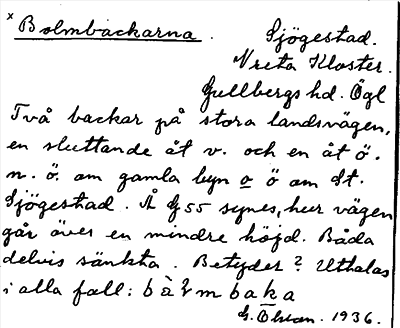 x Bolmbackarna. Sjögestad.
Vreta Kloster.
Gullbergs hd. Ögl
Två backar på stora landsvägen,
en sluttande åt v. och en åt ö.
n. ö. om gamla byn o ö om St.
Sjögestad. Å G 55 synes, hur vägen
går över en mindre höjd. Båda
delvis sänkta. Betyder? Uthalas
i alla fall: bm baka
G. Olson. 1936.